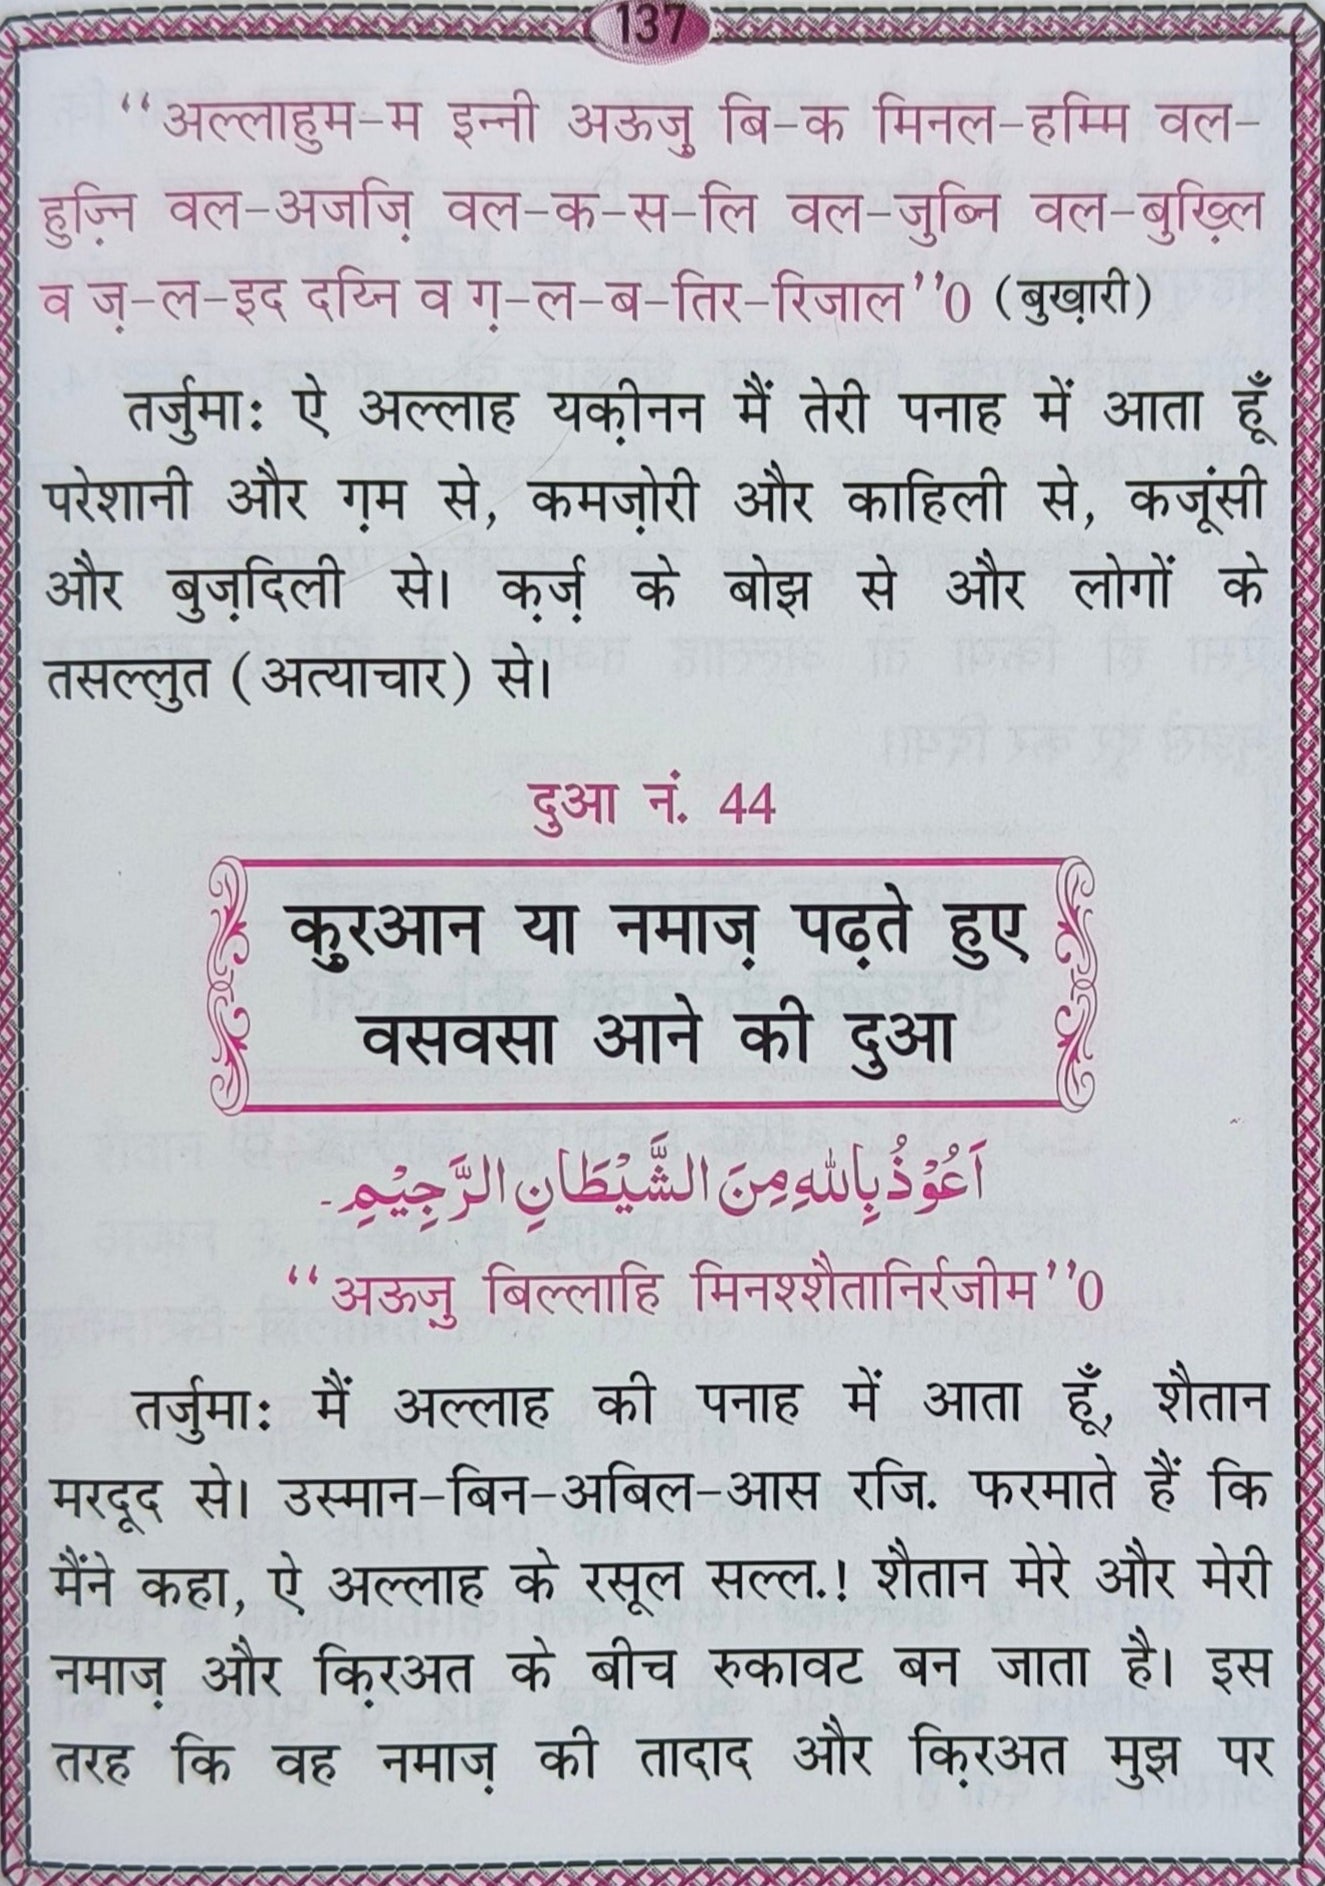 137
‘‘अल्लाहुम-म इन्नी अऊजु़ बि-क मिनल-हम्मि वल-
हुज़्नि वल-अजज़ि वल-क-स-लि वल-जुब्नि वल-बुख़्लि
व ज़-ल-इद दय्नि व ग़-ल-ब-तिर-रिजाल’’0 (बुख़ारी)
तर्जुमाः ऐ अल्लाह यक़ीनन मैं तेरी पनाह में आता हूँ
परेशानी और ग़म से, कमज़ोरी और काहिली से, कजूंसी
और बुज़दिली से। क़र्ज़ के बोझ से और लोगों के
तसल्लुत (अत्याचार) से।
दुआ नं. 44
कु़रआन या नमाज़ पढ़ते हुए
वसवसा आने की दुआ
اَعُوْذُ بِاللهِ مِنَ الشَّيْطَانِ الرَّجِيْمِ۔
‘‘अऊजु़ बिल्लाहि मिनश्शैतानिर्रजीम’’0
तर्जुमाः मैं अल्लाह की पनाह में आता हूँ, शैतान
मरदूद से। उस्मान-बिन-अबिल-आस रजि. फरमाते हैं कि
मैंने कहा, ऐ अल्लाह के रसूल सल्ल.! शैतान मेरे और मेरी
नमाज़ और क़िरअत के बीच रुकावट बन जाता है। इस
तरह कि वह नमाज़ की तादाद और क़िरअत मुझ पर